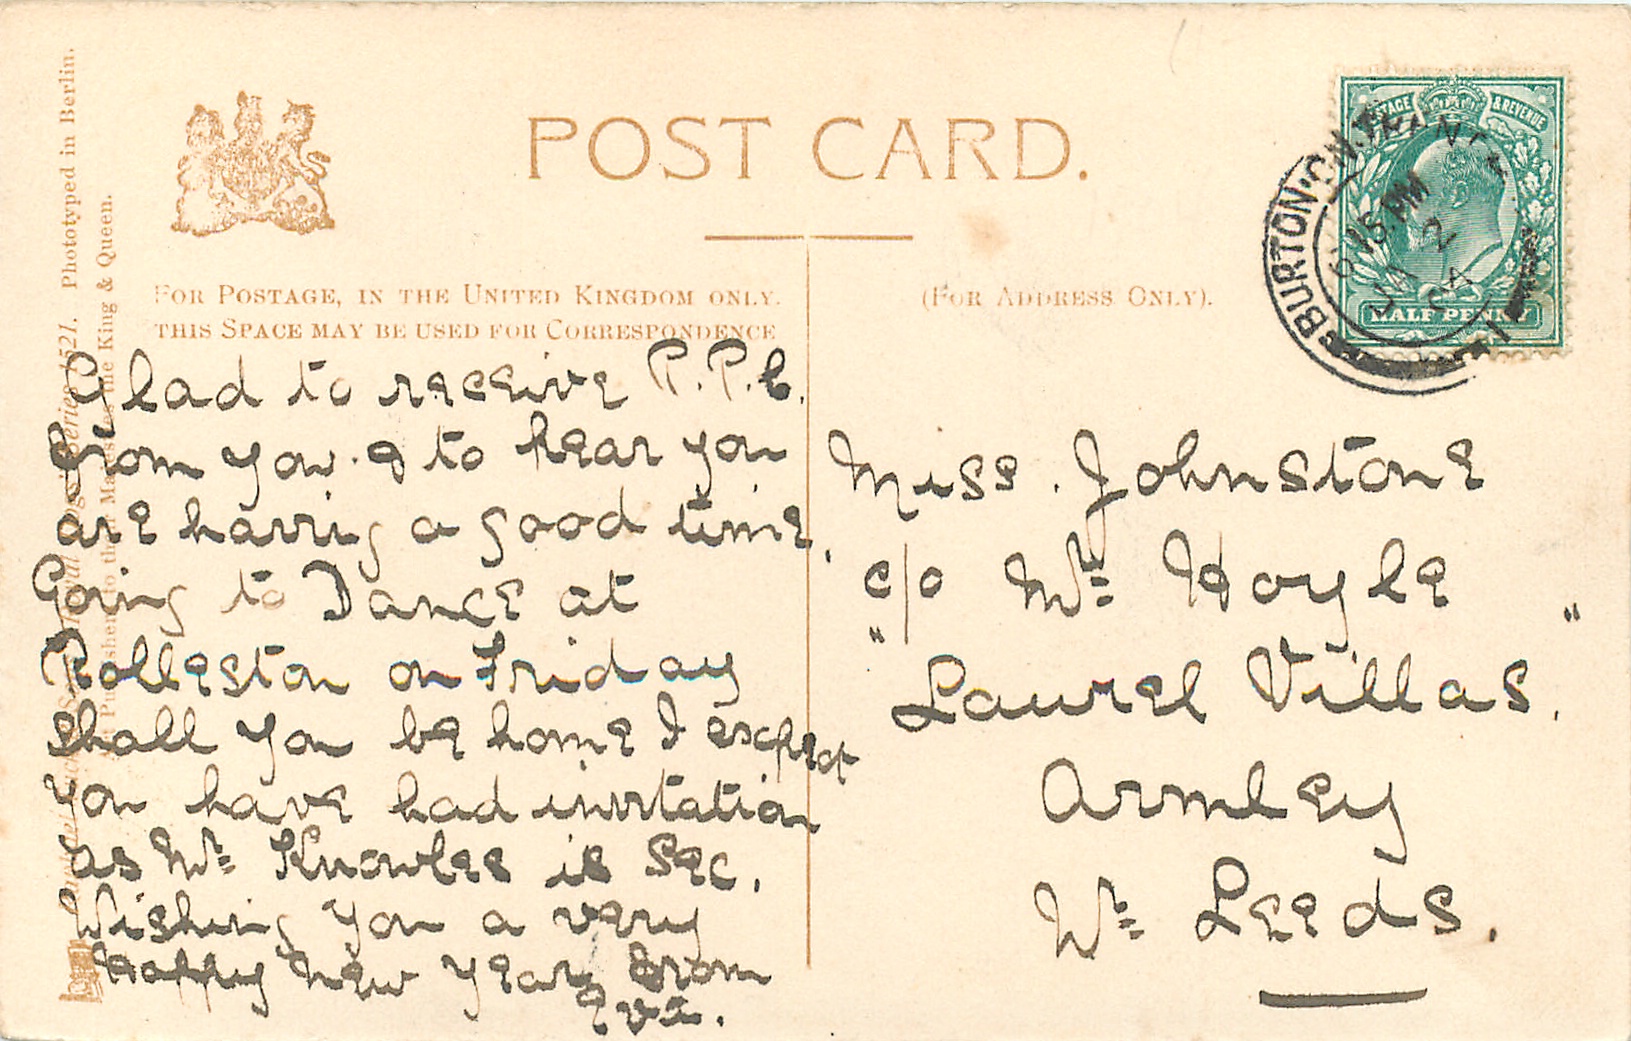 POST CARD.
FOR POSTAGE, IN THE UNITED KINGDOM ONLY.
THIS SPACE MAY BE USED FOR CORRESPONDENCE
(FOR ADDRESS ONLY).
Glad to receive P.P.C.
from you. & to hear you
are having a good time.
Going to Dance at
Rolleston on Friday
shall you be home I expect
you have had invitation
as Mr Knowles is Sec.
Wishing you a very
Happy New Year from
Eva.
Miss. Johnstone
c/o Mr Hoyle
"Laurel Villas"
Armley
Wr Leeds.
POSTAGE & REVENUE
HALF PENNY
BURTON-ON-TRENT
15 PM
2
04
Series 1521. Phototyped in Berlin.
Publishers to their Majesties the King & Queen.